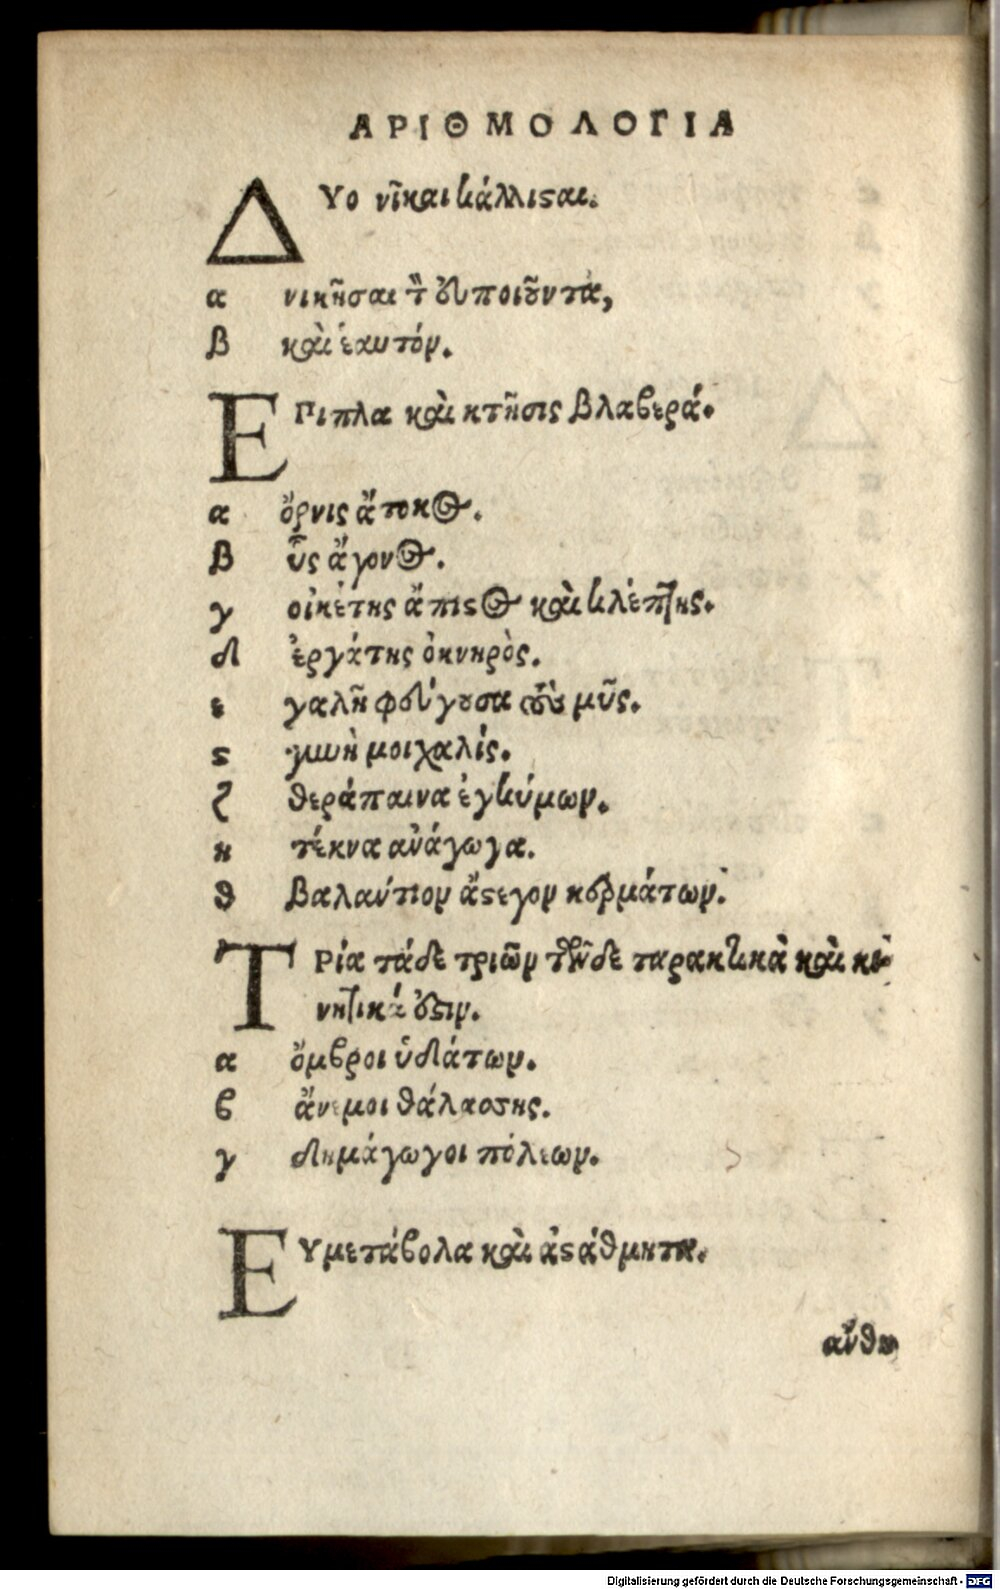 ΑΡΙΘΜΟΛΟΓΙΑ
ΔΥο νῖκαι κάλλιϛαι.
α νικῆσαι τ̀ εὐποιοῦντα,
β καὶ ἑαυτόν.
ΕΠιπλα καὶ κτῆσις βλαβερά.
α ὄρνις ἄτοκος.
β ὗς ἄγονος.
γ οἰκέτης ἄπιϛος καὶ κλέπτης.
δ ἐργάτης ὀκνηρὸς.
ε γαλῆ φεύγουσα τοὺς μῦς.
ϛ γυνὴ μοιχαλίς.
ζ θεράπαινα ἐγκύμων.
η τέκνα ἀνάγωγα.
θ βαλαύτιον ἄϛεγον κερμάτων.
ΤΡία τάδε τριῶν τῶνδε ταρακτικὰ καὶ κι-
νητικά ἐϛιν.
α ὄμβροι ὑδάτων.
β ἄνεμοι θάλασσης.
γ δημάγωγοι πόλεων.
ΕΥμετάβολα καὶ ἀϛάθμητα.
Digitalisierung gefördert durch die Deutsche Forschungsgemeinschaft - DFG